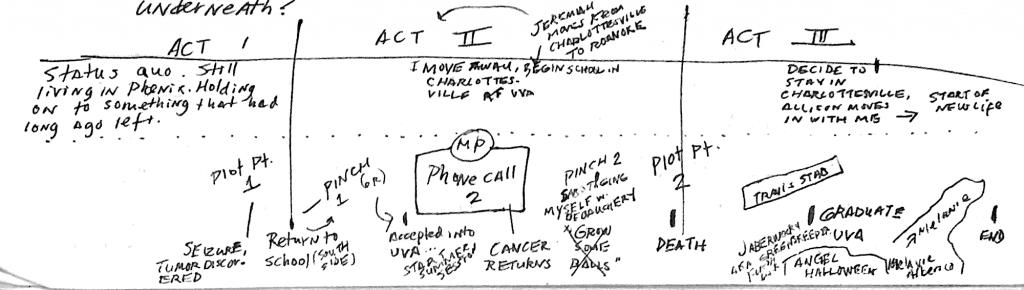 UNDERNEATH?
ACT I
ACT II
JEREMIAH
MOVES FROM
CHARLOTTESVILLE
TO ROANOKE
ACT III
Status quo. Still
living in Phenix. Holding
on to something that had
long ago left.
I MOVE AWAY, BEGIN SCHOOL IN
CHARLOTTES-
VILLE AT UVA
DECIDE TO
STAY IN
CHARLOTTESVILLE,
ALLISON MOVES
IN WITH ME → START OF
NEW LIFE
Plot Pt.
1
SEIZURE,
TUMOR DISCOV-
ERED
PINCH
1
(OR)
Return to
school (SOUTH
SIDE)
Accepted into
UVA ...
START
SUMMER
SESSION
MP
Phone call
2
CANCER
RETURNS
PINCH 2
MYSELF W.
DEBAUCHERY
"GROW
SOME
BALLS"
Plot Pt.
2
DEATH
TRAVIS STAB
GRADUATE
UVA
JABERWOCKY
ANGEL
HALLOWEEN
MELANIE
END